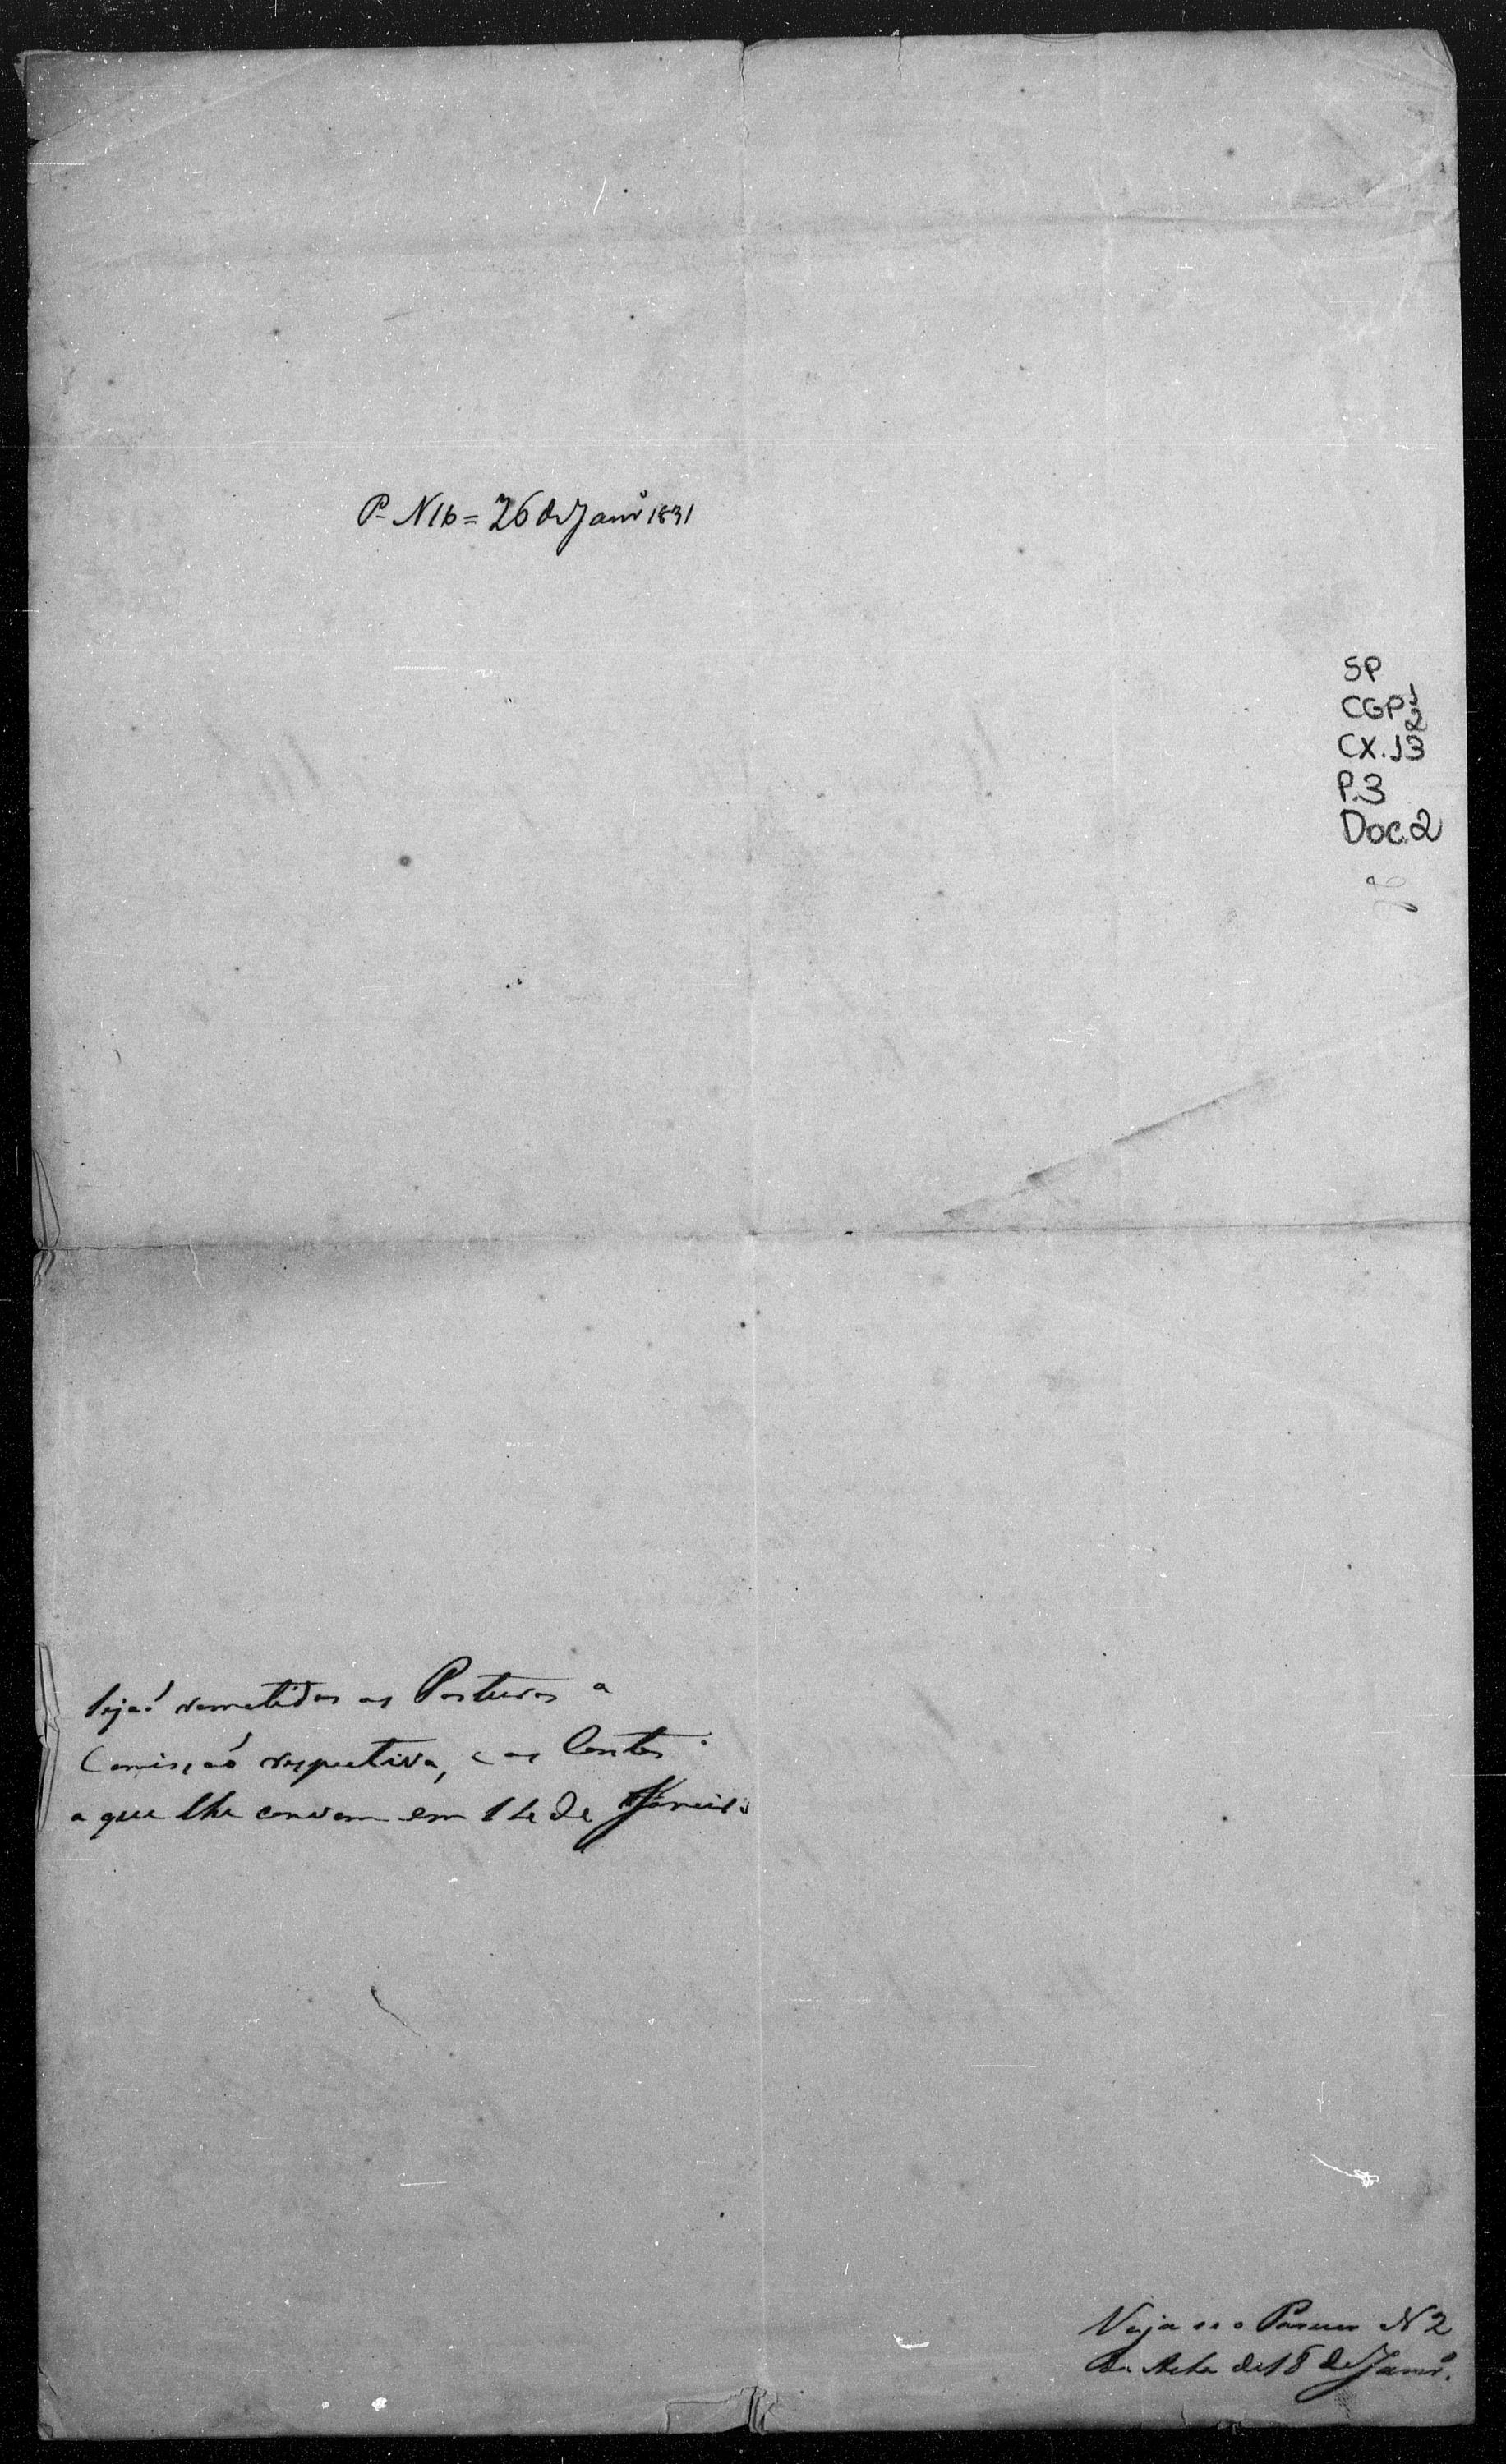 P. N 16 = 26 de Janrº 1831
SP
CGP
CX.13
P.3
Doc.2
Sejaõ remetidas as Posturas a
Comissaõ respectiva, e as Contas
a que lhe convem em 14 de Janeiro
Veja se o Parecer N 2
da Acta de 18 de Janrº.